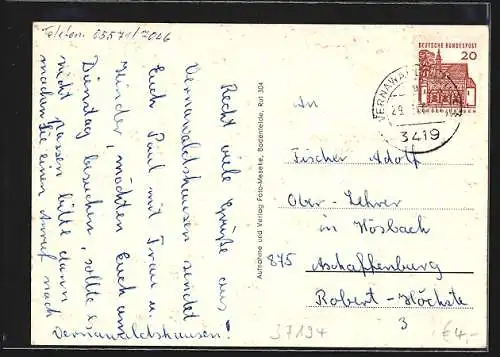 Telefon: 05571/7066
Recht viele Grüße aus
Vernawaldshausen sendet
Euch Paul mit Frau u.
Kinder, möchten Euch am
Dienstag besuchen, sollte es
nicht passen bitte dann
machen Sie einen Anruf nach
Vernawaldshausen!
Aufnahme und Verlag Foto-Meseke, Bodenfelde, Ruf 304
DEUTSCHE BUNDESPOST
20
3419
An
Fischer Adolf
Ober-Lehrer
in Hösbach
875 Aschaffenburg
Robert-Höchste
3
37194
€4,-